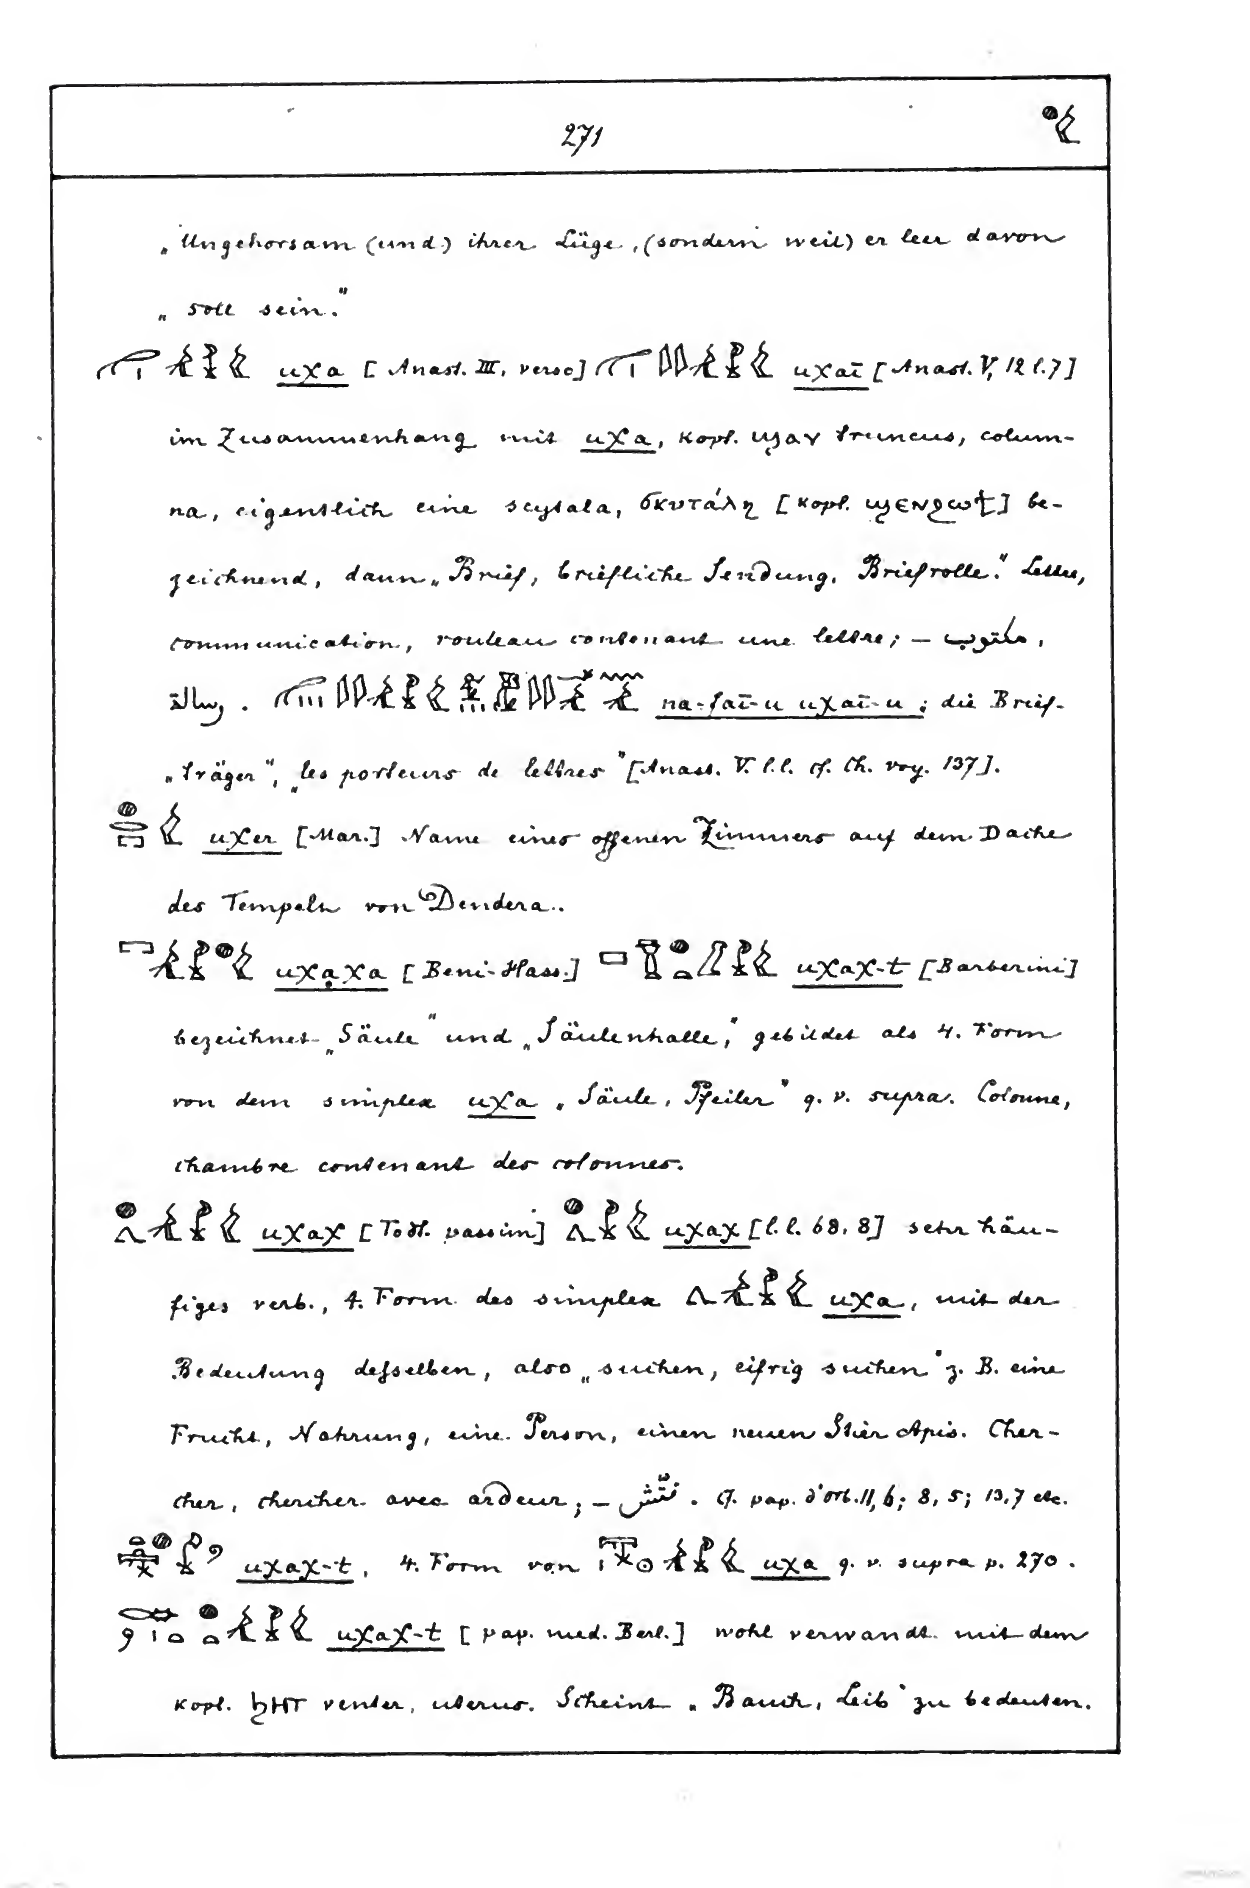 271
„Ungehorsam (und) ihrer Lüge, (sondern weil) er leer davon
„soll sein."
uχa [Anast. III, verso] uχaī [Anast. V, 12 l. 7]
im Zusammenhang mit uχa, kopt. ϣⲁⲩ truncus, colum-
na, eigentlich eine scytala, σκυτάλη [kopt.] be-
zeichnend, dann „Brief, briefliche Sendung, Briefrolle." Lettre,
communication, rouleau contenant une lettre; – مكتوب,
رسالة. na-faī-u uχaī-u; die Brief-
„träger", „les porteurs de lettres" [Anast. V. l. l. cf. Ch. voy. 137].
uχer [Mar.] Name eines offenen Zimmers auf dem Dache
des Tempels von Dendera.
uχạχa [Beni-Hass.] uχaχ-t [Barberini]
bezeichnet „Säule" und „Säulenhalle", gebildet als 4. Form
von dem simplex uχa „Säule, Pfeiler" q. v. supra. Colonne,
chambre contenant des colonnes.
uχaχ [Todt. passim] uχaχ [l. l. 68, 8] sehr häu-
figes verb., 4. Form des simplex uχa, mit der
Bedeutung desselben, also „suchen, eifrig suchen" z. B. eine
Frucht, Nahrung, eine Person, einen neuen Stier Apis. Cher-
cher, chercher avec ardeur; – فتّش. Cf. pap. d'Orb. 11, 6; 8, 5; 13, 7 etc.
uχaχ-t, 4. Form von uχa q. v. supra p. 270.
uχaχ-t [pap. med. Berl.] wohl verwandt mit dem
kopt. ϧⲏⲧ venter, uterus. Scheint „Bauch, Leib" zu bedeuten.